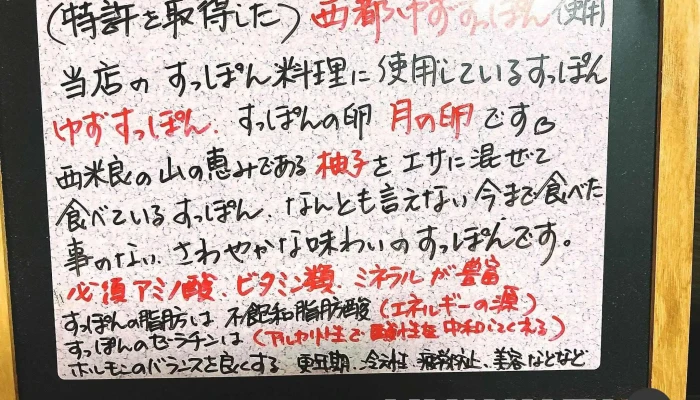 (特許を取得した) 西都ゆずすっぽん使用
当店のすっぽん料理に使用しているすっぽん
ゆずすっぽん、すっぽんの卵 月の卵です。
西米良の山の恵みである柚子をエサに混ぜて
食べているすっぽん、なんとも言えない今まで食べた
事のない、さわやかな味わいのすっぽんです。
必須アミノ酸、ビタミン類、ミネラルが豊富
すっぽんの脂肪は 不飽和脂肪酸 (エネルギーの源)
すっぽんのゼラチンは (アルカリ性で酸性を中和してくれる)
ホルモンのバランスを良くする 更年期、冷え性、疲労防止、美容などなど